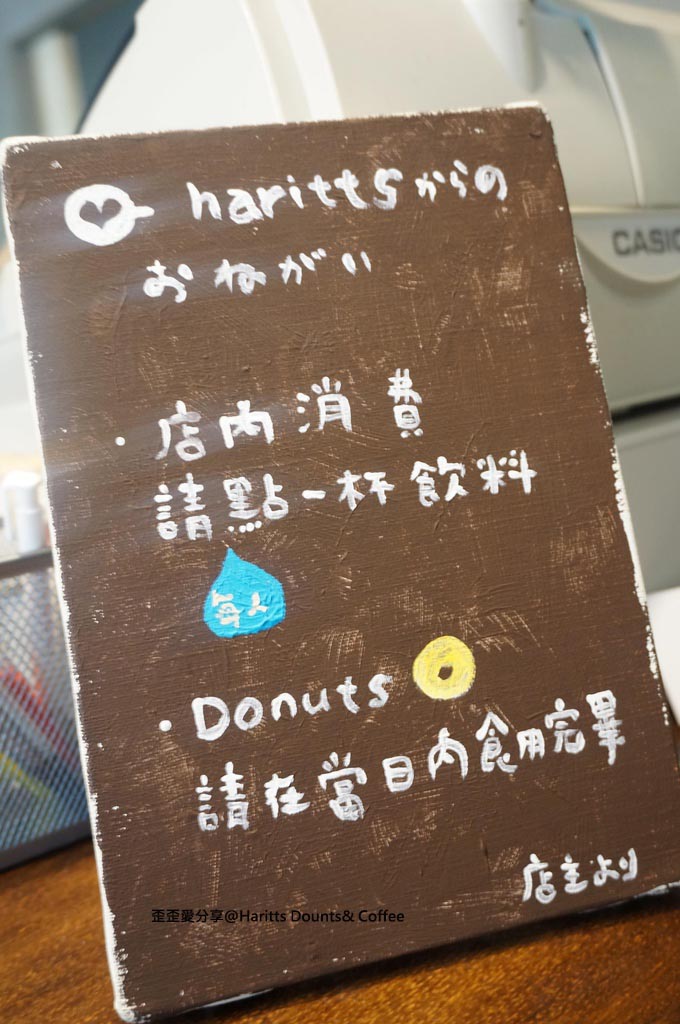 harittsからの
おねがい
・店內消費
請點一杯飲料
每人
・Donuts
請在當日內食用完畢
店主より
歪歪愛分享@Haritts Dounts& Coffee
CASIO